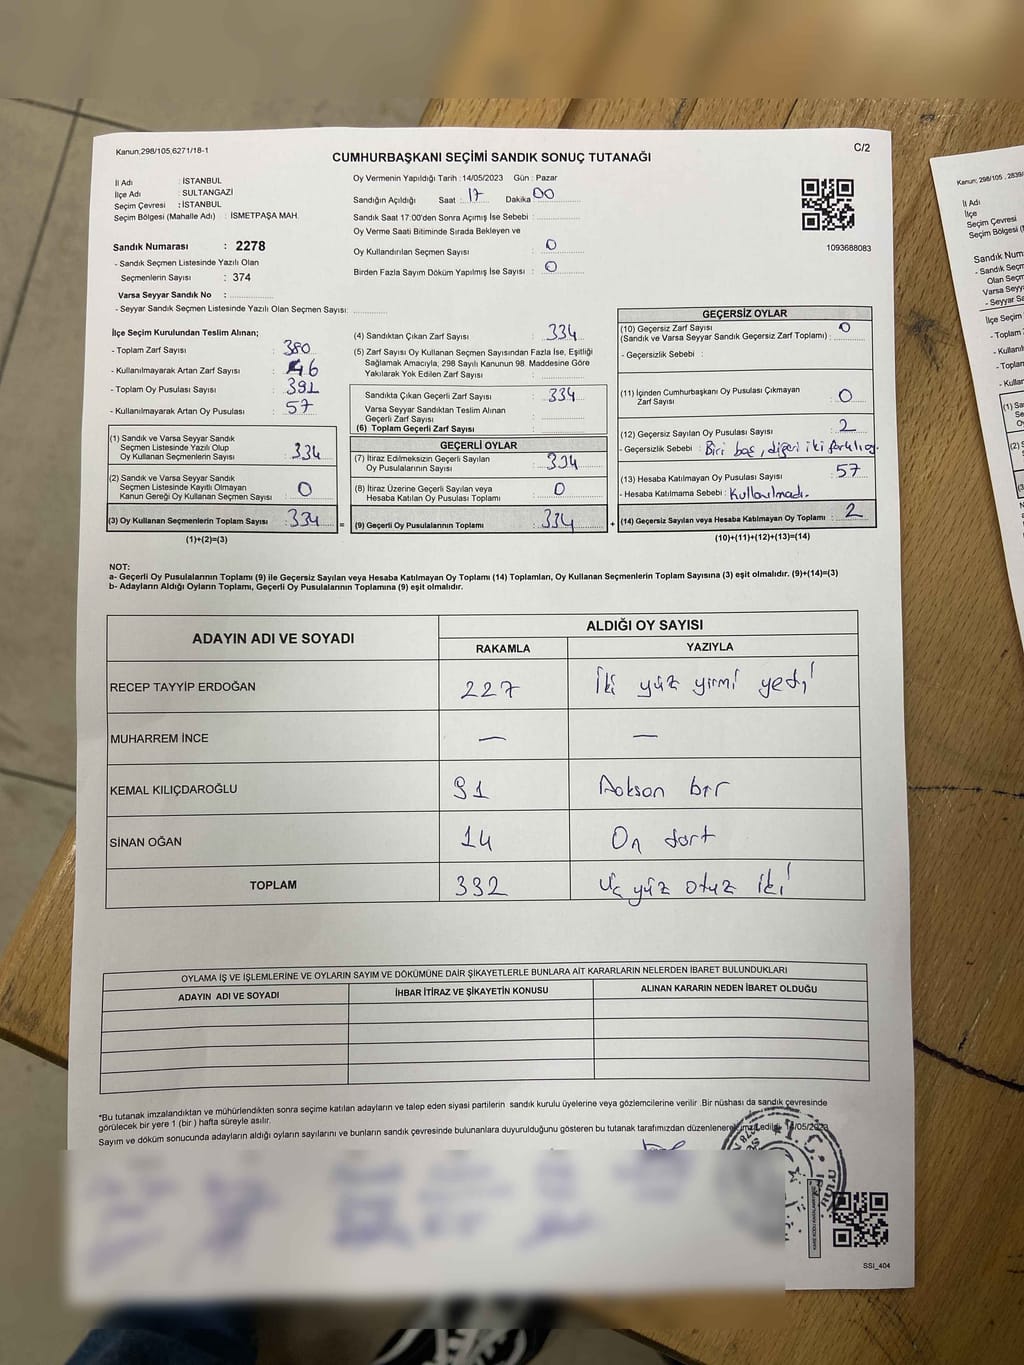 Kanun;298/105,6271/18-1
C/2
CUMHURBAŞKANI SEÇİMİ SANDIK SONUÇ TUTANAĞI
İl Adı : İSTANBUL
İlçe Adı : SULTANGAZİ
Seçim Çevresi : İSTANBUL
Seçim Bölgesi (Mahalle Adı) : İSMETPAŞA MAH.
Oy Vermenin Yapıldığı Tarih : 14/05/2023 Gün : Pazar
Sandığın Açıldığı Saat : 17 Dakika 00
Sandık Saat 17:00'den Sonra Açımış İse Sebebi :
Oy Verme Saati Bitiminde Sırada Bekleyen ve
Oy Kullandırılan Seçmen Sayısı : 0
Birden Fazla Sayım Döküm Yapılmış İse Sayısı : 0
1093688083
Sandık Numarası : 2278
- Sandık Seçmen Listesinde Yazılı Olan
Seçmenlerin Sayısı : 374
Varsa Seyyar Sandık No :
- Seyyar Sandık Seçmen Listesinde Yazılı Olan Seçmen Sayısı:
İlçe Seçim Kurulundan Teslim Alınan;
- Toplam Zarf Sayısı : 380
- Kullanılmayarak Artan Zarf Sayısı : 46
- Toplam Oy Pusulası Sayısı : 391
- Kullanılmayarak Artan Oy Pusulası : 57
(1) Sandık ve Varsa Seyyar Sandık
Seçmen Listesinde Yazılı Olup
Oy Kullanan Seçmenlerin Sayısı : 334
(2) Sandık ve Varsa Seyyar Sandık
Seçmen Listesinde Kayıtlı Olmayan
Kanun Gereği Oy Kullanan Seçmen Sayısı : 0
(3) Oy Kullanan Seçmenlerin Toplam Sayısı : 334 =
(1)+(2)=(3)
(4) Sandıktan Çıkan Zarf Sayısı : 334
(5) Zarf Sayısı Oy Kullanan Seçmen Sayısından Fazla İse, Eşitliği
Sağlamak Amacıyla, 298 Sayılı Kanunun 98. Maddesine Göre
Yakılarak Yok Edilen Zarf Sayısı :
Sandıkta Çıkan Geçerli Zarf Sayısı : 334
Varsa Seyyar Sandıktan Teslim Alınan
Geçerli Zarf Sayısı :
(6) Toplam Geçerli Zarf Sayısı :
GEÇERLİ OYLAR
(7) İtiraz Edilmeksizin Geçerli Sayılan
Oy Pusulalarının Sayısı : 334
(8) İtiraz Üzerine Geçerli Sayılan veya
Hesaba Katılan Oy Pusulası Toplamı : 0
(9) Geçerli Oy Pusulalarının Toplamı : 334 +
GEÇERSİZ OYLAR
(10) Geçersiz Zarf Sayısı : 0
(Sandık ve Varsa Seyyar Sandık Geçersiz Zarf Toplamı)
- Geçersizlik Sebebi :
(11) İçinden Cumhurbaşkanı Oy Pusulası Çıkmayan
Zarf Sayısı : 0
(12) Geçersiz Sayılan Oy Pusulası Sayısı : 2
- Geçersizlik Sebebi : Biri boş, diğeri iki
(13) Hesaba Katılmayan Oy Pusulası Sayısı : 57
- Hesaba Katılmama Sebebi : Kullanılmadı.
(14) Geçersiz Sayılan veya Hesaba Katılmayan Oy Toplamı : 2
(10)+(11)+(12)+(13)=(14)
NOT:
a- Geçerli Oy Pusulalarının Toplamı (9) ile Geçersiz Sayılan veya Hesaba Katılmayan Oy Toplamı (14) Toplamları, Oy Kullanan Seçmenlerin Toplam Sayısına (3) eşit olmalıdır. (9)+(14)=(3)
b- Adayların Aldığı Oyların Toplamı, Geçerli Oy Pusulalarının Toplamına (9) eşit olmalıdır.
ADAYIN ADI VE SOYADI ALDIĞI OY SAYISI
RAKAMLA YAZIYLA
RECEP TAYYİP ERDOĞAN 227 İki yüz yirmi yedi
MUHARREM İNCE — —
KEMAL KILIÇDAROĞLU 91 Doksan bir
SİNAN OĞAN 14 On dört
TOPLAM 332 Üç yüz otuz iki
OYLAMA İŞ VE İŞLEMLERİNE VE OYLARIN SAYIM VE DÖKÜMÜNE DAİR ŞİKAYETLERLE BUNLARA AİT KARARLARIN NELERDEN İBARET BULUNDUKLARI
ADAYIN ADI VE SOYADI İHBAR İTİRAZ VE ŞİKAYETİN KONUSU ALINAN KARARIN NEDEN İBARET OLDUĞU
*Bu tutanak imzalandıktan ve mühürlendikten sonra seçime katılan adayların ve talep eden siyasi partilerin sandık kurulu üyelerine veya gözlemcilerine verilir .Bir nüshası da sandık çevresinde
görülecek bir yere 1 (bir ) hafta süreyle asılır.
Sayım ve döküm sonucunda adayların aldığı oyların sayılarını ve bunların sandık çevresinde bulunanlara duyurulduğunu gösteren bu tutanak tarafımızdan düzenlenerek imza edildi. 14/05/2023
T.C.
SSI_404
Kanun; 298/105
İl Adı
İlçe
Seçim Çevresi